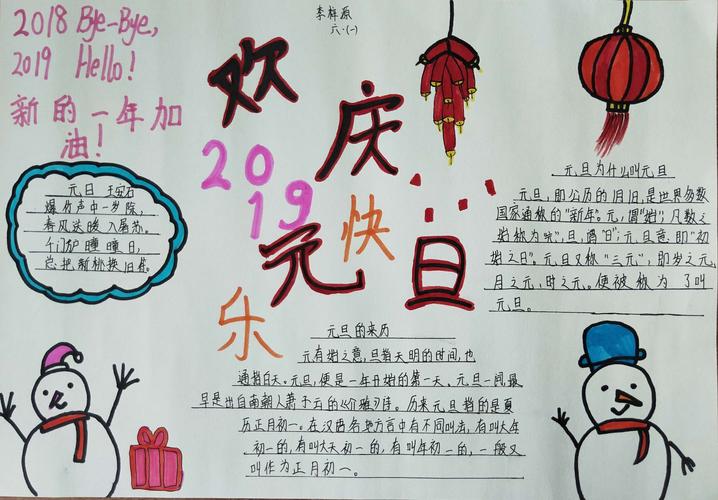 2018 Bye-Bye,
2019 Hello!
新的一年加
油!
李梓源
六·(一)
欢
庆
2019
元旦
快
乐
元日 王安石
爆竹声中一岁除,
春风送暖入屠苏。
千门万户曈曈日,
总把新桃换旧符。
元旦为什么叫元旦
元旦,即公历的1月1日,是世界多数
国家通称的“新年”。元,谓“始”,凡数之
始称为“元”,旦,谓“日”;元旦意即“初
始之日”。元旦又称“三元”,即岁之元,
月之元,时之元。便被称为了叫
元旦。
元旦的来历
元有始之意,旦指天明的时间,也
通指白天。元旦,便是一年开始的第一天。元旦一词最
早是出自南朝人萧子云的《介雅》诗。历来元旦指的是夏
历正月初一。在汉语各地方言中有不同叫法,有叫大年
初一的,有叫大天初一的,有叫年初一的,一般又
叫作为正月初一。